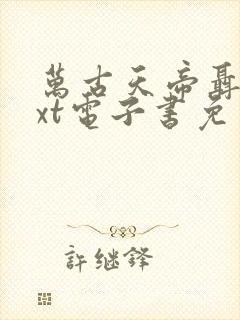 萬古天帝聶
xt電子書免
許継鋒